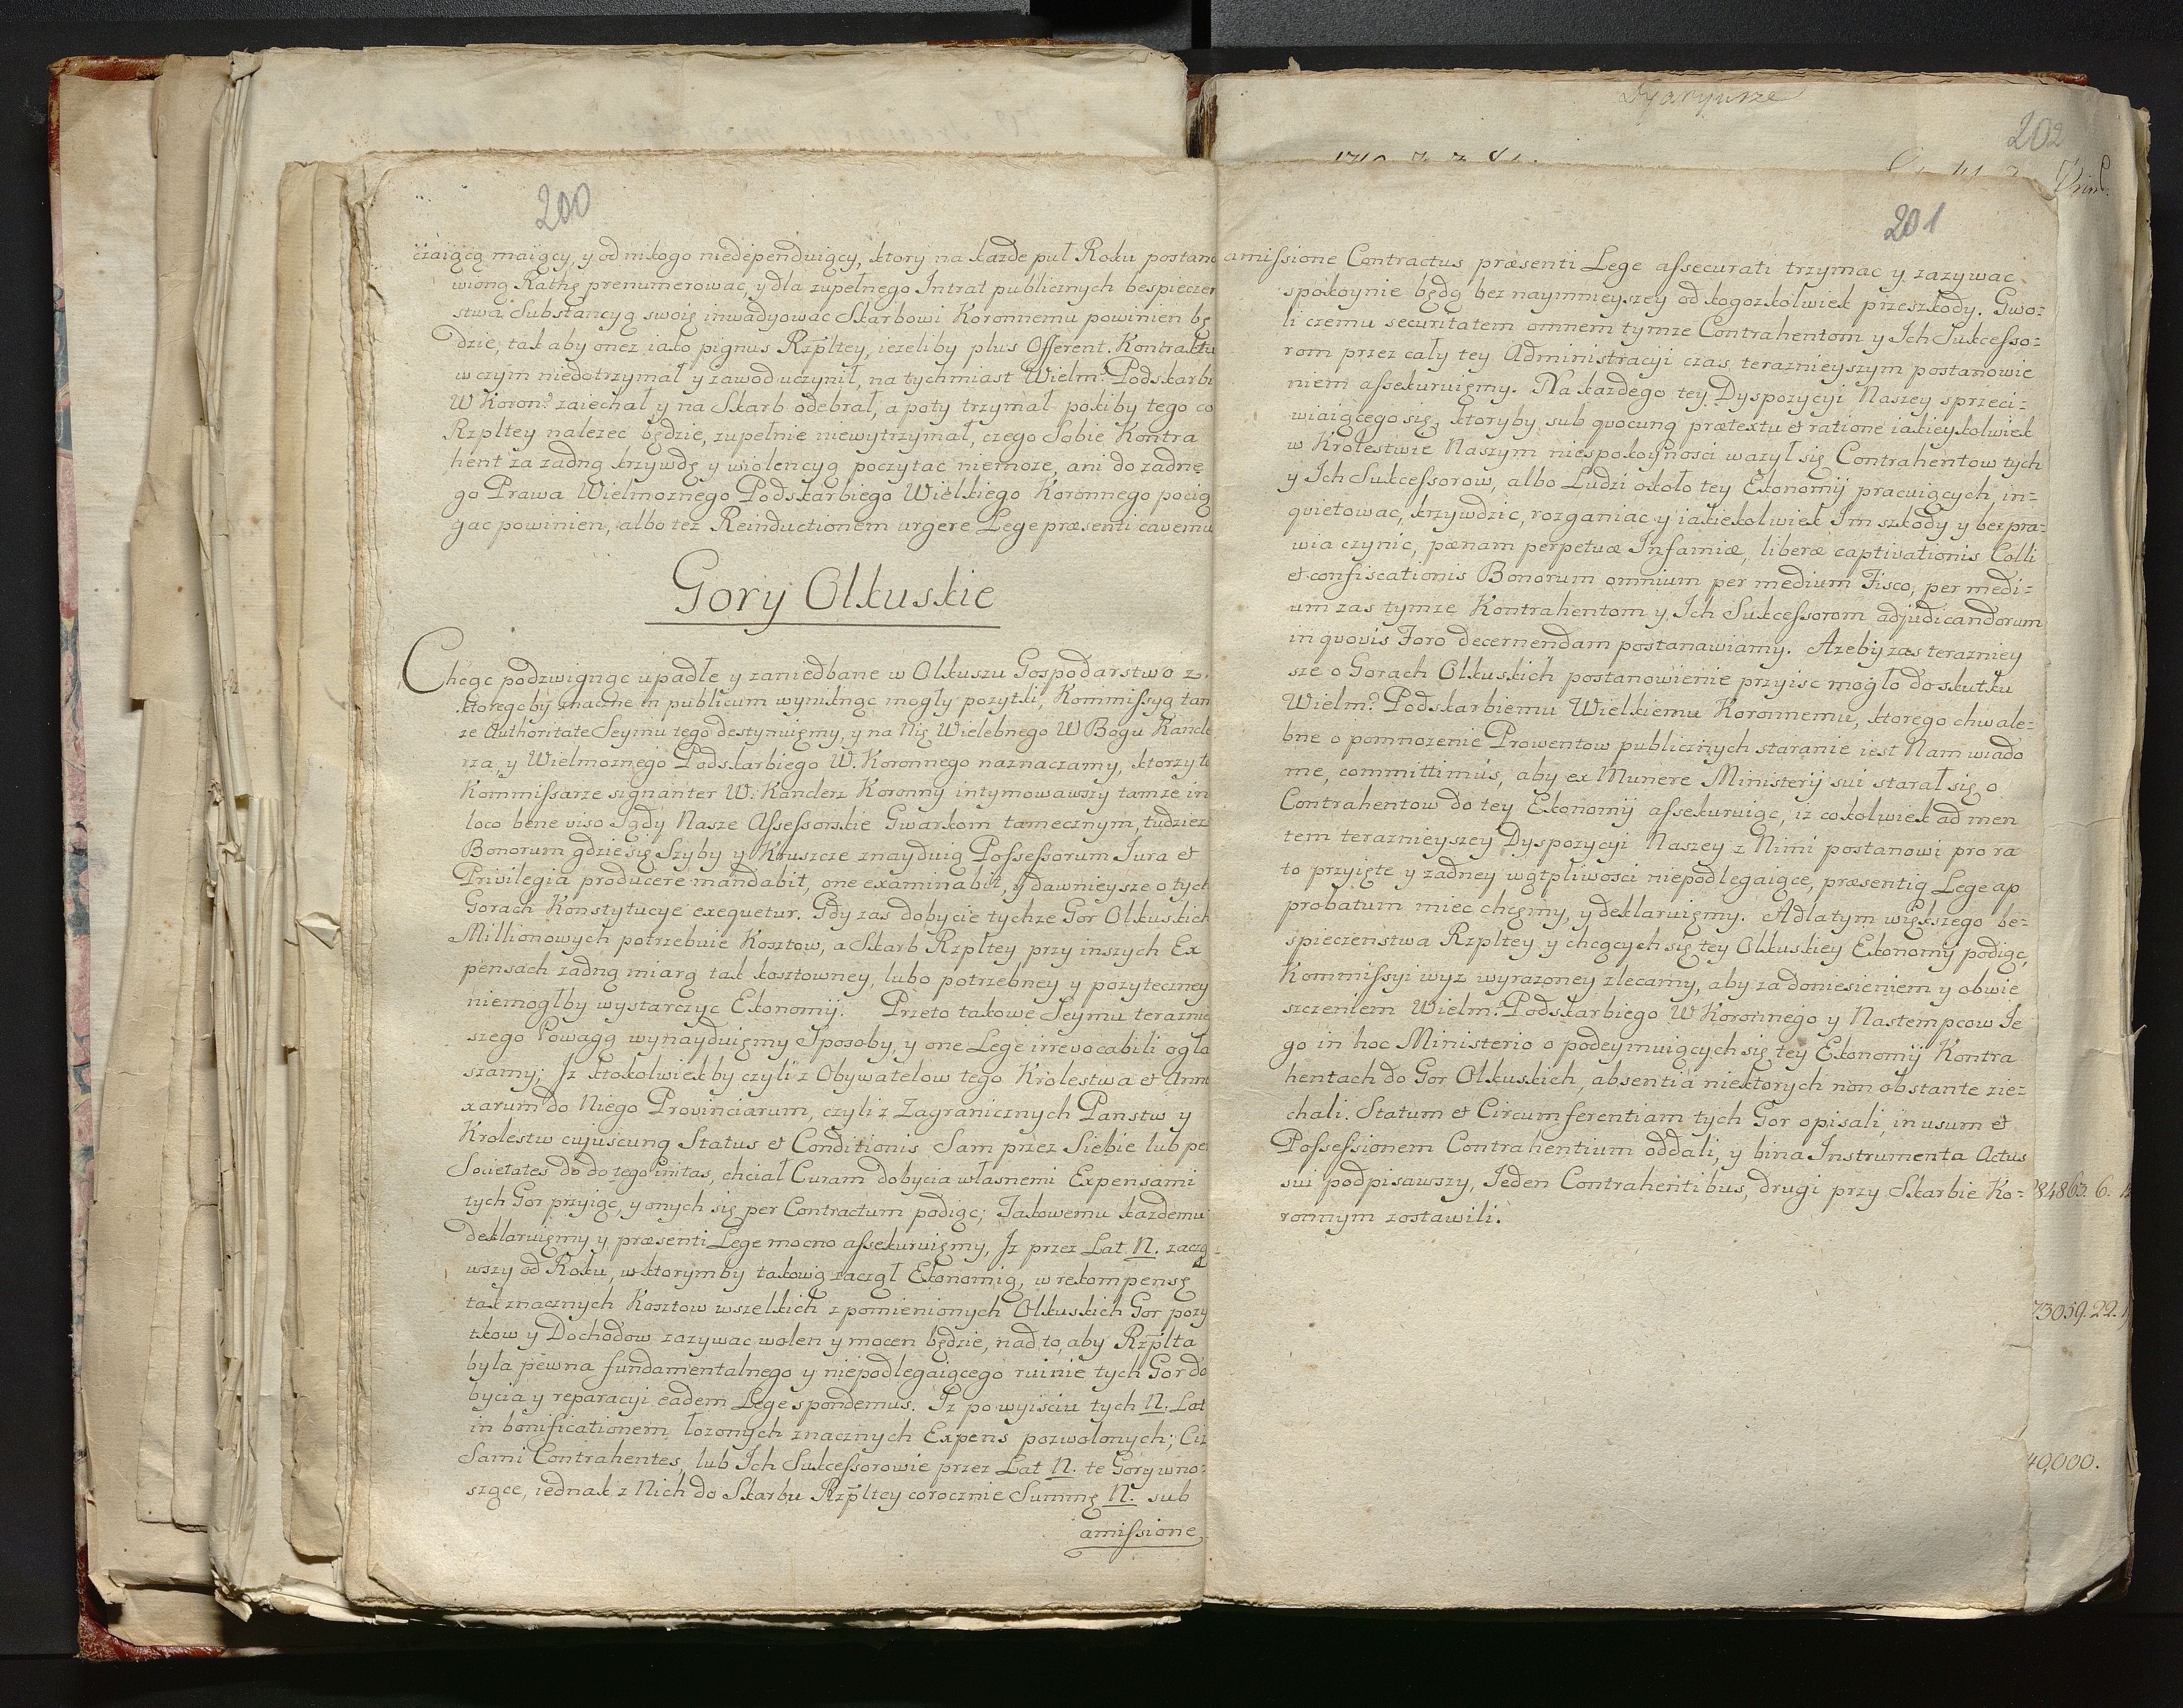 200
czaiącą maiący, y od nikogo niedependuiący, ktory na kazde puł Roku postano
wioną Rathę prenumerowac, y dla zupełnego Intrat publicznych bespieczen
stwa Substancyą swoię inwadyowac Skarbowi Koronnemu powinien bę
dzie, tak aby onez iako pignus Rzpltey, iezeliby plus Offerent. Kontraktu
w czym niedotrzymał y zawod uczynił, na tychmiast Wielm: Podskarbi
W Koron: zaiechał y na Skarb odebrał, a poty trzymał pokiby tego co
Rzpltey nalezec będzie, zupełnie niewytrzymał, czego Sobie Kontra
hent za zadną krzywdę y wiolencyą poczytac niemoze, ani do zadne
go Prawa Wielmoznego Podskarbiego Wielkiego Koronnego pocią
gac powinien, albo tez Reinductionem urgere Lege præsenti cavemu
Gory Olkuskie
Chcąc podzwignąc upadłe y zaniedbane w Olkuszu Gospodarstwo z
ktoregoby znaczne in publicum wyniknąc mogły pozytki, Kommissyą tam
ze Authoritate Seymu tego destynuięmy, y na Nię Wielebnego W Bogu Kancle
rza, y Wielmoznego Podskarbiego W. Koronnego naznaczamy, ktorzy to
Kommissarze signanter W. Kanclerz Koronny intymowawszy tamze in
loco bene viso Sądy Nasze Assessorskie Gwarkom tamecznym, tudziez
Bonorum gdzie się Szyby y Kruszcze znayduią Possessorum Iura et
Privilegia producere mandabit, one examinabit, y dawnieysze o tych
Gorach Konstytucye exequetur. Gdy zas dobycie tychze Gor Olkuskich
Millionowych potrzebuie Kosztow, a Skarb Rzpltey przy inszych Ex
pensach zadną miarą tak kosztowney, lubo potrzebney y pozyteczney
niemogłby wystarczyc Ekonomij. Przeto takowe Seymu teraznie
szego Powagą wynayduięmy Sposoby, y one Lege irrevocabili ogła
szamy; Iz ktokolwiekby czyli z Obywatelow tego Krolestwa et Anne
xarum do Niego Provinciarum, czyli z Zagranicznych Panstw y
Krolestw cujuscunq Status et Conditionis Sam przez Siebie lub per
Societates do do tego initas, chciał Curam dobycia własnemi Expensami
tych Gor przyiąc, y onych się per Contractum podiąc; Takowemu kazdemu
deklaruięmy y præsenti Lege mocno assekuruięmy, Iz przez Lat N. zaczą
wszy od Roku, w ktorymby takową zaczął Ekonomią, w rekompensę
tak znacznych Kosztow wszelkich z pomienionych Olkuskich Gor pozy
tkow y Dochodow zazywac wolen y mocen będzie, nad to, aby Rzplta
była pewna fundamentalnego y niepodlegaiącego ruinie tych Gor do
bycia y reparacyi eadem Lege spondemus. Iz po wyisciu tych N. Lat
in bonificationem łozonych znacznych Expens pozwolonych; Ciz
Sami Contrahentes lub Ich Sukcessorowie przez Lat N. te Gory wno:
szące, iednak z Nich do Skarbu Rzpltey corocznie Summę N. sub
amissione
Dyaryusze
202
201
amissione Contractus præsenti Lege assecurati trzymac y zazywac
spokoynie będą bez naymnieyszey od kogozkolwiek przeszkody. Gwo:
li czemu securitatem omnem tymze Contrahentom y Ich Sukcesso:
rom przez cały tey Administracyi czas terazniejszym postanowie
niem assekuruięmy. Na kazdego tey Dyspozycyi Naszey sprzeci:
wiaiącego się, ktoryby sub quocunq prætextu et ratione iakieykolwiek
w Krolestwie Naszym niespokoynosci wazył się Contrahentow tych
y Ich Sukcessorow, albo Ludzi około tey Ekonomij pracuiących, in=
quietowac, krzywdzic, rozganiac y iakiekolwiek Im szkody y bezpra=
wia czynic, pænam perpetuæ Infamiæ, liberæ captivationis Colli
et confiscationis Bonorum omnium per medium Fisco, per medi=
um zas tymze Kontrahentom y Ich Sukcessorom adjudicandorum
in quovis Foro decernendam postanawiamy. Azeby zas terazniey
sze o Gorach Olkuskich postanowienie przyisc mogło do skutku
Wielm: Podskarbiemu Wielkiemu Koronnemu, ktorego chwale=
bne o pomnozenie Prowentow publicznych staranie iest Nam wiado
me, committimus, aby ex Munere Ministerij sui starał się o
Contrahentow do tey Ekonomij assekuruiąc, iz cokolwiek ad men
tem teraznieyszey Dyspozycyi Naszey z Nimi postanowi pro ra
to przyięte y zadney wątpliwosci niepodlegaiące, præsentią Lege ap
probatum miec chcęmy, y deklaruięmy. A dla tym większego be=
spieczenstwa Rzpltey y chcących się tey Olkuskiey Ekonomij podiąc,
Kommissyi wyz wyrazoney zlecamy, aby za doniesieniem y obwie
szczeniem Wielm: Podskarbiego W Koronnego y Nastempcow Ie
go in hoc Ministerio o podeymuiących się tey Ekonomij Kontra
hentach do Gor Olkuskich, absentiâ niektorych non obstante zie=
chali. Statum et Circumferentiam tych Gor opisali, in usum et
Possessionem Contrahentium oddali, y bina Instrumenta Actus
sui podpisawszy, Ieden Contrahentibus, drugi przy Skarbie Ko=
ronnym zostawili.
84865. 6.
73059. 22.
40,000.